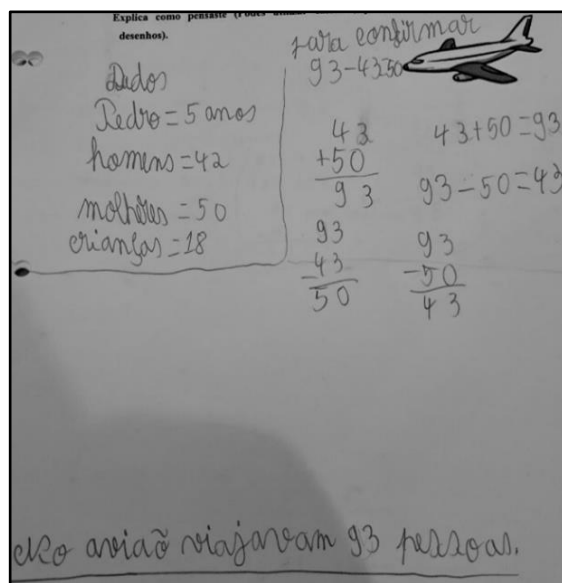 Explica como pensaste (Podes utilizar
desenhos).
Dados
Pedro = 5 anos
homens = 42
molhéres = 50
crianças = 18
para confirmar
93-43=50
43
+50
93
43+50=93
93-50=43
93
-43
50
93
-50
43
No avião viajavam 93 pessoas.